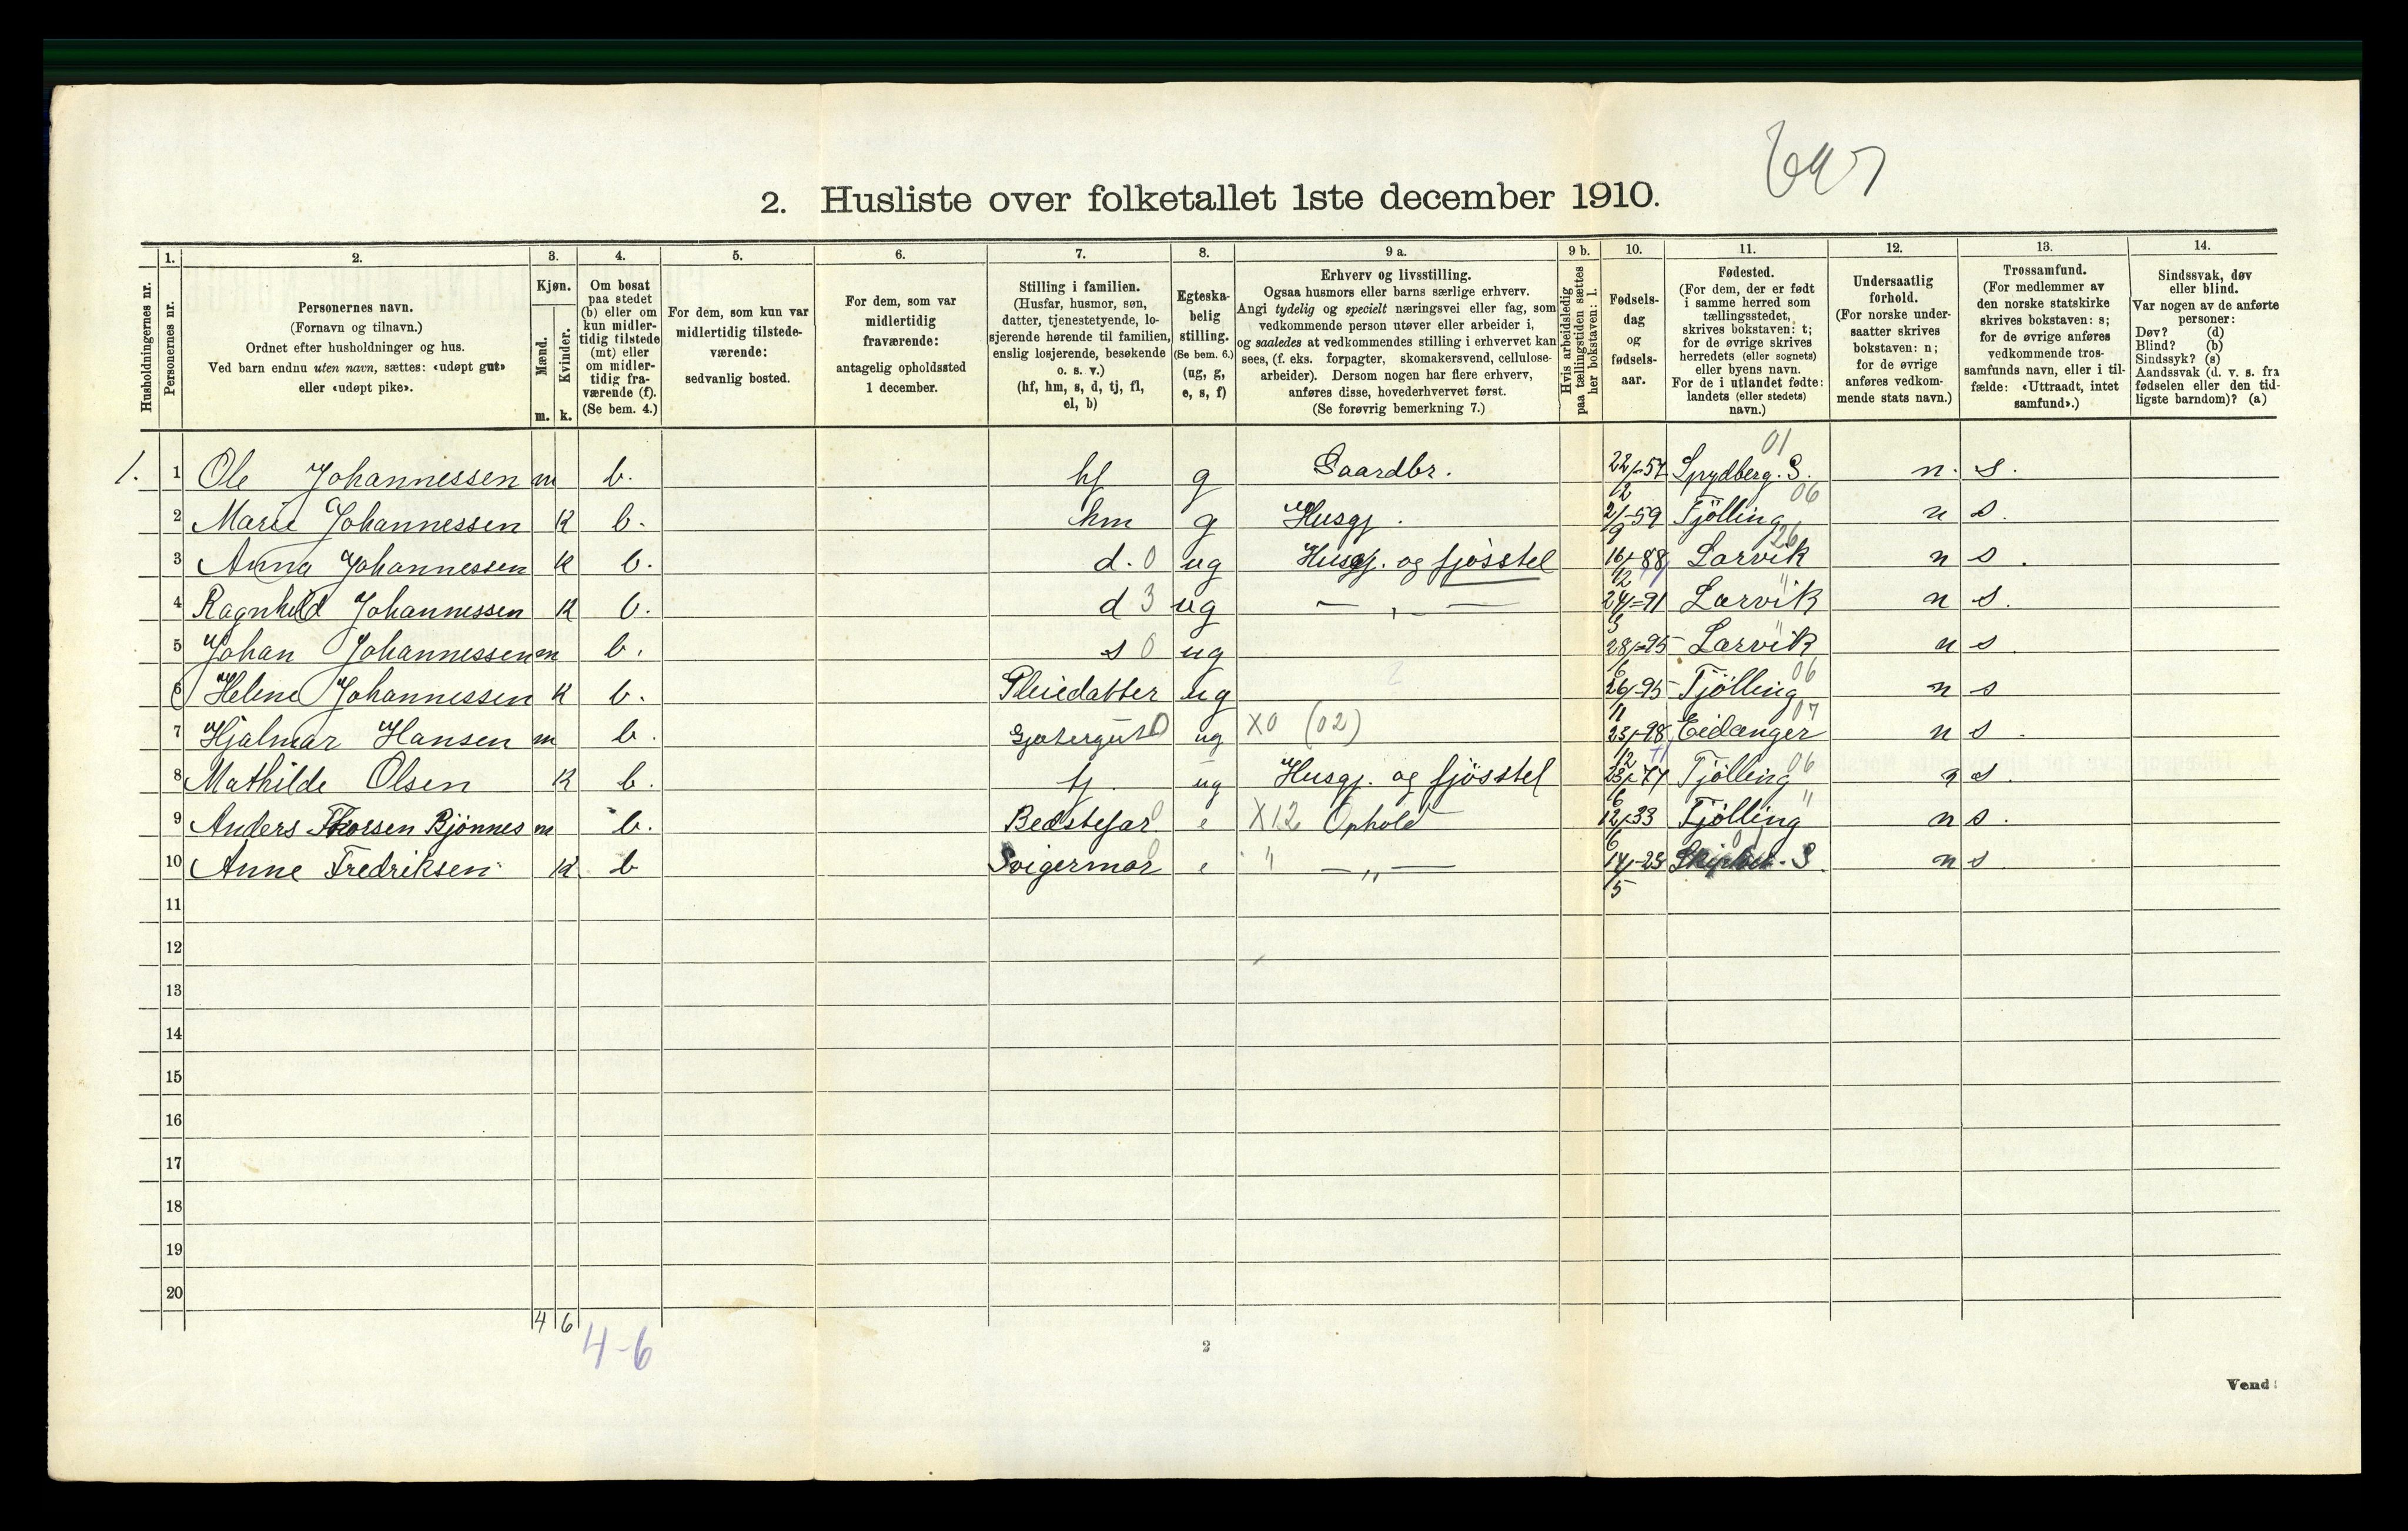 2. Husliste over folketallet 1ste december 1910.
1. 2. 3. 4. 5. 6. 7. 8. 9 a. 9 b. 10. 11. 12. 13. 14.
Husholdningernes nr.
Personernes nr.
Personernes navn.
(Fornavn og tilnavn.)
Ordnet efter husholdninger og hus.
Ved barn endnu uten navn, sættes: «udøpt gut»
eller «udøpt pike».
Kjøn.
Mænd.
Kvinder.
m. k.
Om bosat
paa stedet
(b) eller om
kun midler-
tidig tilstede
(mt) eller
om midler-
tidig fra-
værende (f).
(Se bem. 4.)
For dem, som kun var
midlertidig tilstede-
værende:
sedvanlig bosted.
For dem, som var
midlertidig
fraværende:
antagelig opholdssted
1 december.
Stilling i familien.
(Husfar, husmor, søn,
datter, tjenestetyende, lo-
sjerende hørende til familien,
enslig losjerende, besøkende
o. s. v.)
(hf, hm, s, d, tj, fl,
el, b)
Egteska-
belig
stilling.
(Se bem. 6.)
(ug, g,
e, s, f)
Erhverv og livsstilling.
Ogsaa husmors eller barns særlige erhverv.
Angi tydelig og specielt næringsvei eller fag, som
vedkommende person utøver eller arbeider i,
og saaledes at vedkommendes stilling i erhvervet kan
sees, (f. eks. forpagter, skomakersvend, cellulose-
arbeider). Dersom nogen har flere erhverv,
anføres disse, hovederhvervet først.
(Se forøvrig bemerkning 7.)
Hvis arbeidsledig
paa tællingstiden sættes
her bokstaven: l.
Fødsels-
dag
og
fødsels-
aar.
Fødested.
(For dem, der er født
i samme herred som
tællingsstedet,
skrives bokstaven: t;
for de øvrige skrives
herredets (eller sognets)
eller byens navn.
For de i utlandet fødte:
landets (eller stedets)
navn.)
Undersaatlig
forhold.
(For norske under-
saatter skrives
bokstaven: n;
for de øvrige
anføres vedkom-
mende stats navn.)
Trossamfund.
(For medlemmer av
den norske statskirke
skrives bokstaven: s;
for de øvrige anføres
vedkommende tros-
samfunds navn, eller i til-
fælde: «Uttraadt, intet
samfund».)
Sindssvak, døv
eller blind.
Var nogen av de anførte
personer:
Døv? (d)
Blind? (b)
Sindssyk? (s)
Aandssvak (d. v. s. fra
fødselen eller den tid-
ligste barndom)? (a)
01
1. 1 Ole Johannessen m b. hf g Gaardbr. 22/12-57 Spydberg. S. n. s.
06
2 Marie Johannessen K b. hm g Husgj. 2/9-59 Tjölling n s.
26
3 Anna Johannessen K b. d. 0 ug Husgj. og fjösstel 16/12-88 Larvik n s.
4 Ragnhild Johannessen K b. d 3 ug — „ — 24/3-91 Larvik n s.
5 Johan Johannessen m b. s 0 ug 28/6-95 Larvik n s.
06
6 Helene Johannessen K b. Pleiedatter ug 2 26/11-95 Tjölling n s
07
7 Hjalmar Hansen m b. Gjætergut 0 ug X0 (02) 23/12-98 Eidanger n s.
06
8 Mathilde Olsen K b. tj. ug Husgj. og fjösstel 23/6-77 Tjölling n s.
9 Anders Thorsen Bjönnes m b. Bedstefar e X12 Ophold 12/6-33 Tjölling " n s.
10 Anne Fredriksen K b Svigermor e " — „ — 14/5-23 n s.
11
12
13
14
15
16
17
18
19
20
4 6
4-6
2
Vend!